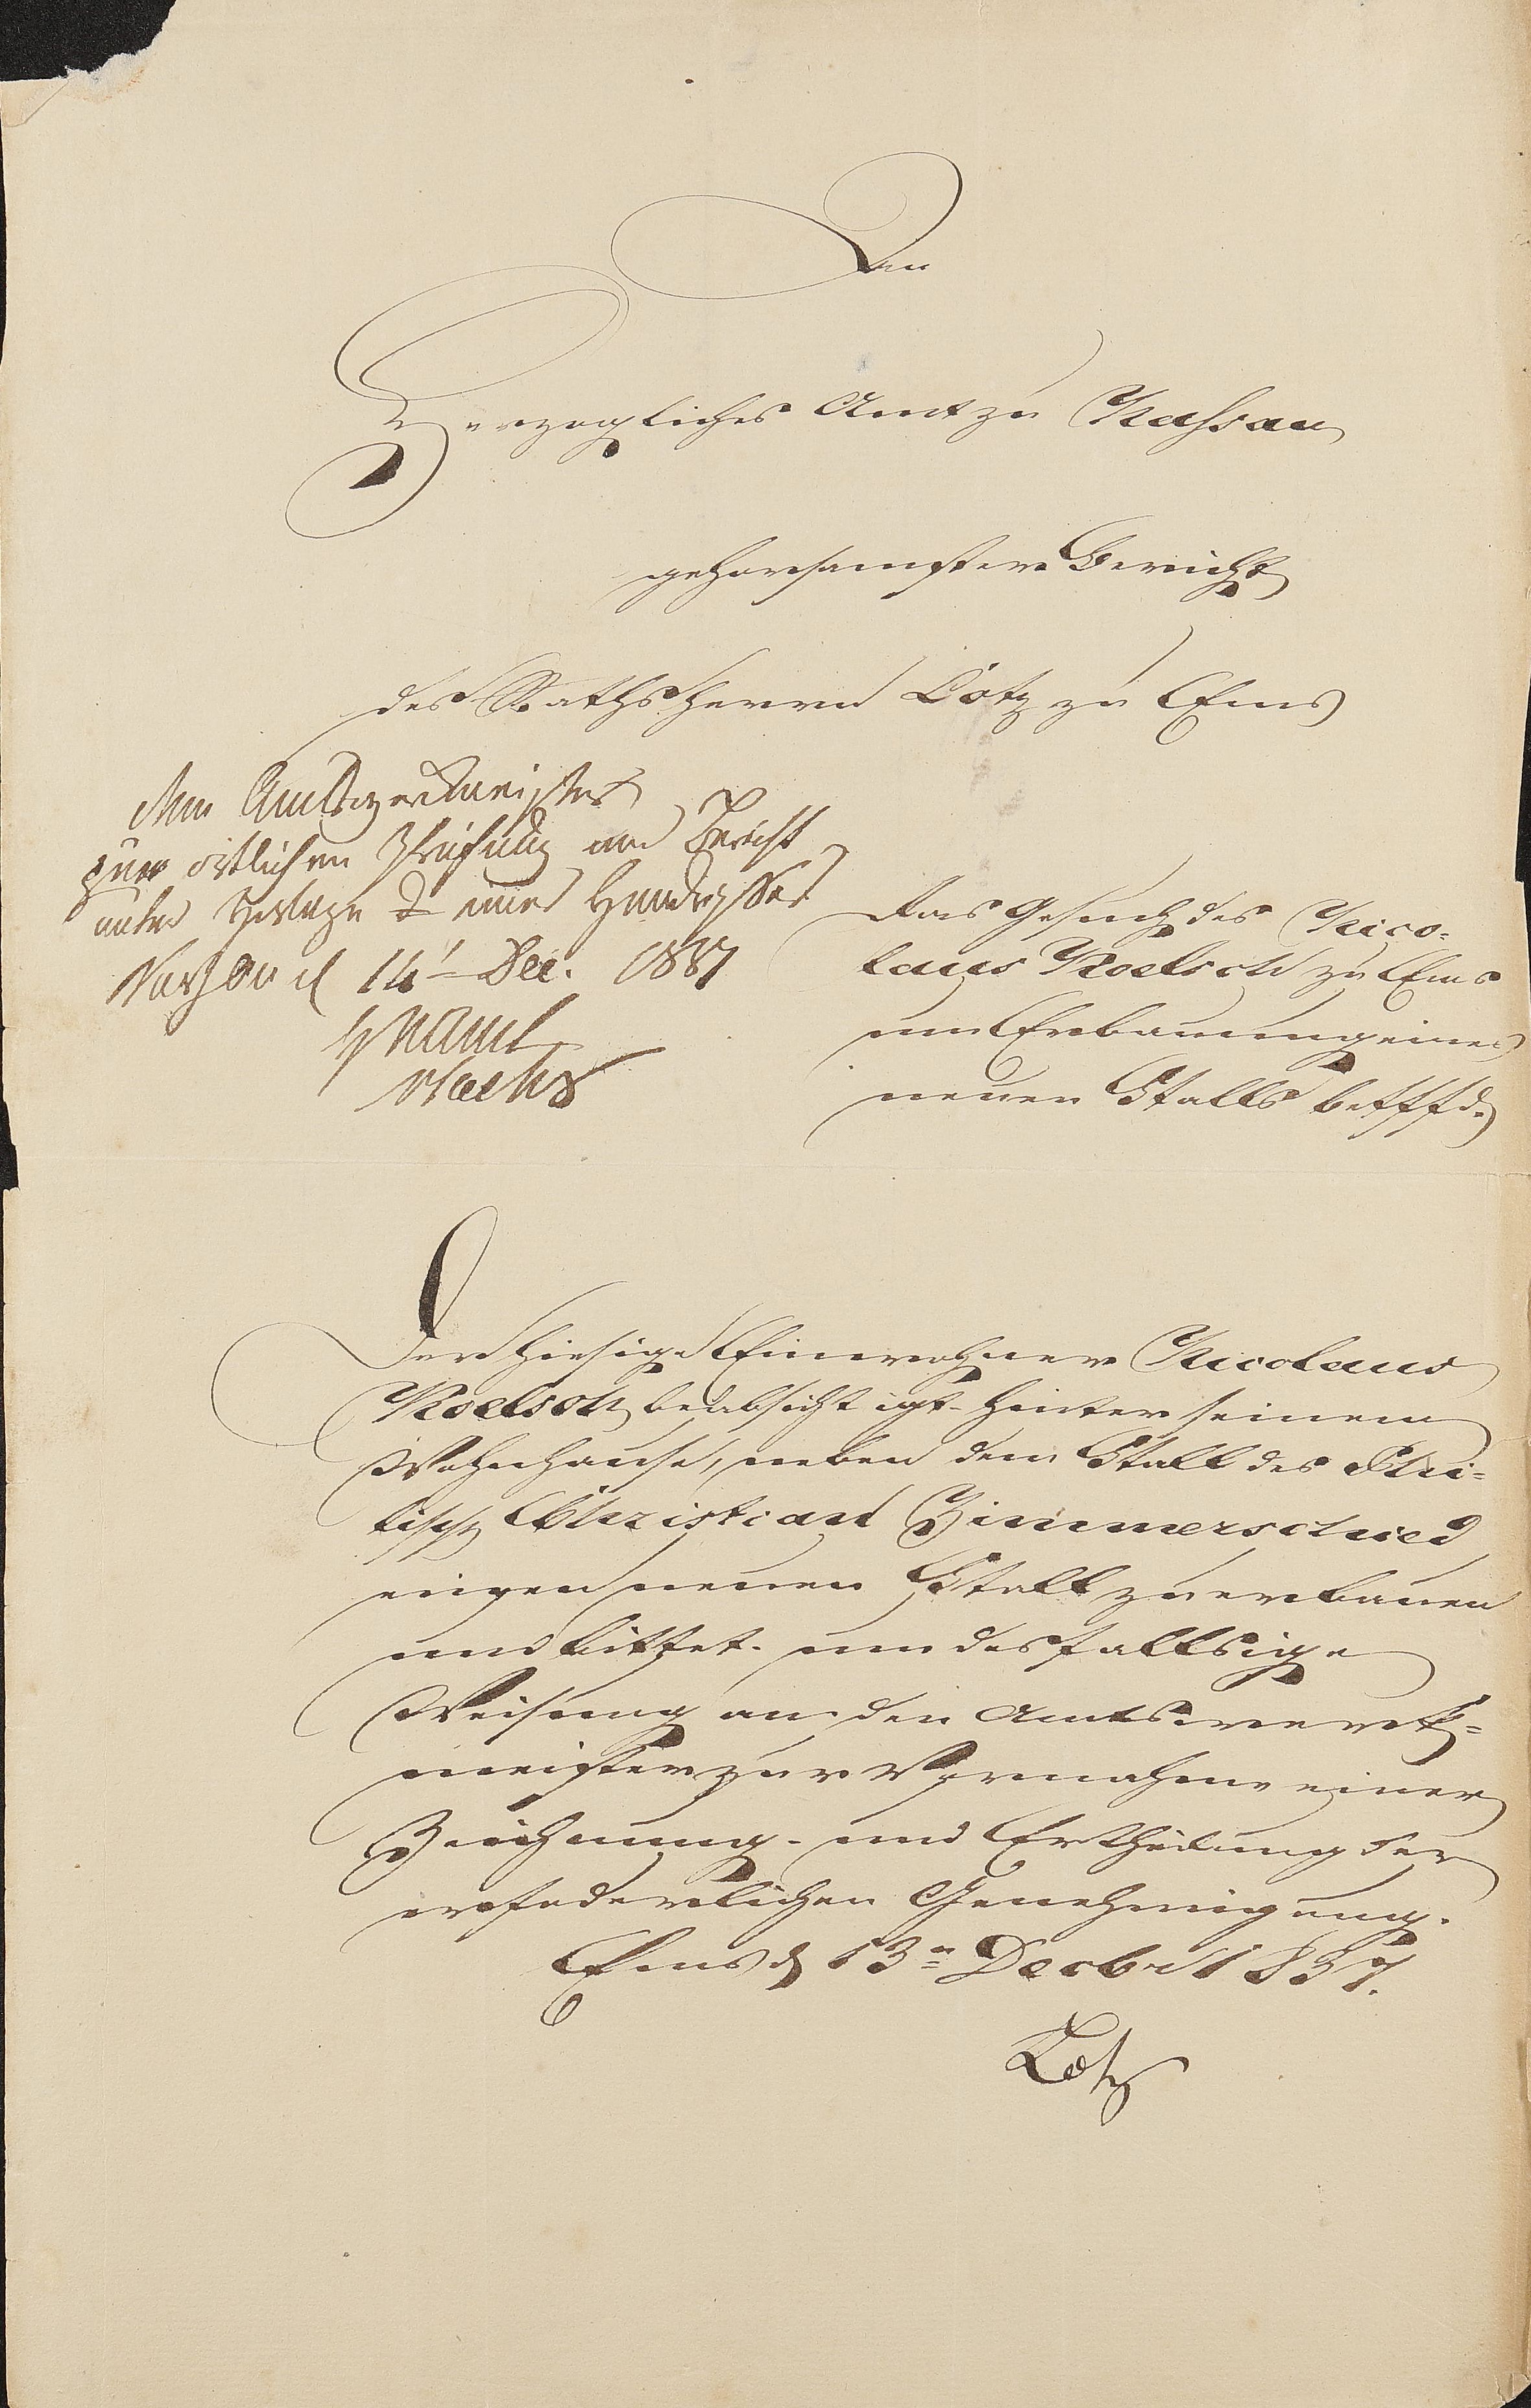 An
Herzogliches Amt zu Nassau
gehorsamster Bericht
des Rathsherrn Lotz zu Ems
dem Amtswerkmeister
zur örtlichen Prüfung und Bericht
unter Vorlage eines Handrisses
Nassau d 14t Dec. 1837
H N Amt
Das Gesuch des Nico-
laus Roelsch zu Ems
um Erbauung eines
neuen Stalls betffd.
Der hiesige Einwohner Nicolaus
Roelsch beabsichtigt hinter seinem
Wohnhause, neben dem Stall des Phi-
lipp Christian Zimmerschied
einen neuen Stall zu erbauen
und bittet um desfallsige
Weisung an den Amtswerk-
meister zur Vornahme einer
Zeichnung und Ertheilung der
erfoderlichen Genehmigung.
Ems d 13n Decbr 1837.
Lotz